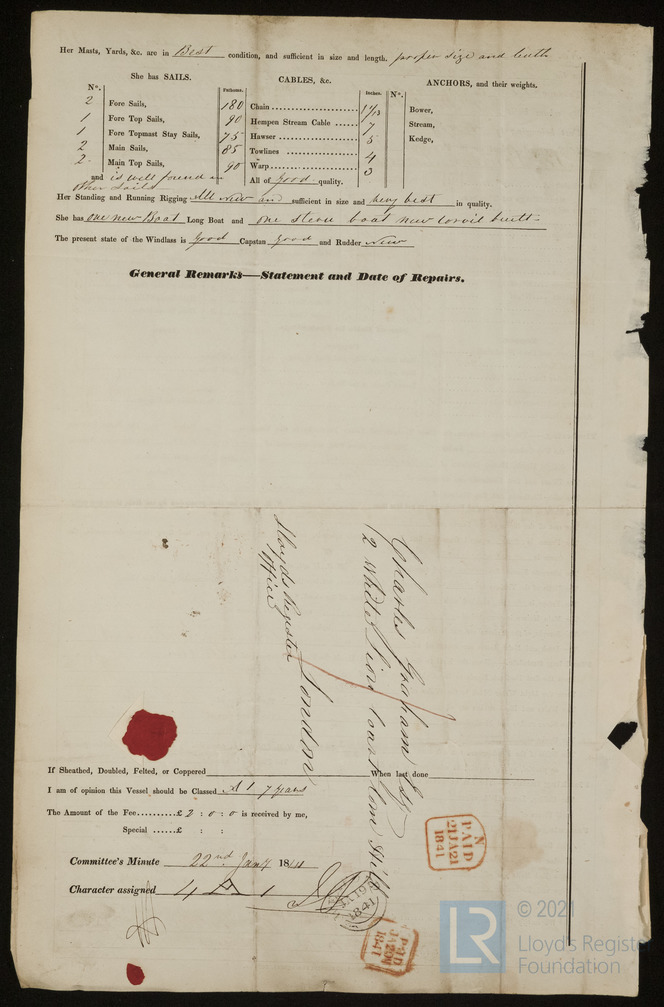 Her Masts, Yards, &c. are in Best condition, and sufficient in size and length. proper size and
She has SAILS.
CABLES, &c.
ANCHORS, and their weights.
No.
Fathoms.
Inches.
No.
2 Fore Sails, 180 Chain 1 1/13 Bower,
1 Fore Top Sails, 90 Hempen Stream Cable 7 Stream,
1 Fore Topmast Stay Sails, 75 Hawser 5 Kedge,
2 Main Sails, 85 Towlines 4
2 Main Top Sails, 90 Warp 3
and is well found in All of good quality.
other sails
Her Standing and Running Rigging All New and sufficient in size and very best in quality.
She has one new Boat Long Boat and one stern boat new built
The present state of the Windlass is good Capstan good and Rudder New
General Remarks—Statement and Date of Repairs.
Charles Graham Esqr
2 White Lion Court Corn Hill
London
Lloyds Register
Office
If Sheathed, Doubled, Felted, or Coppered When last done
I am of opinion this Vessel should be Classed A 1 7 years
The Amount of the Fee..........£ 2 : 0 : 0 is received by me,
Special ......£ : :
N
PAID
21JA21
1841
Committee's Minute 22nd Jany 1841
Character assigned 4 A 1
JA 19
1841
PAID
JA 20
1841
LR
© 2021
Lloyd's Register
Foundation